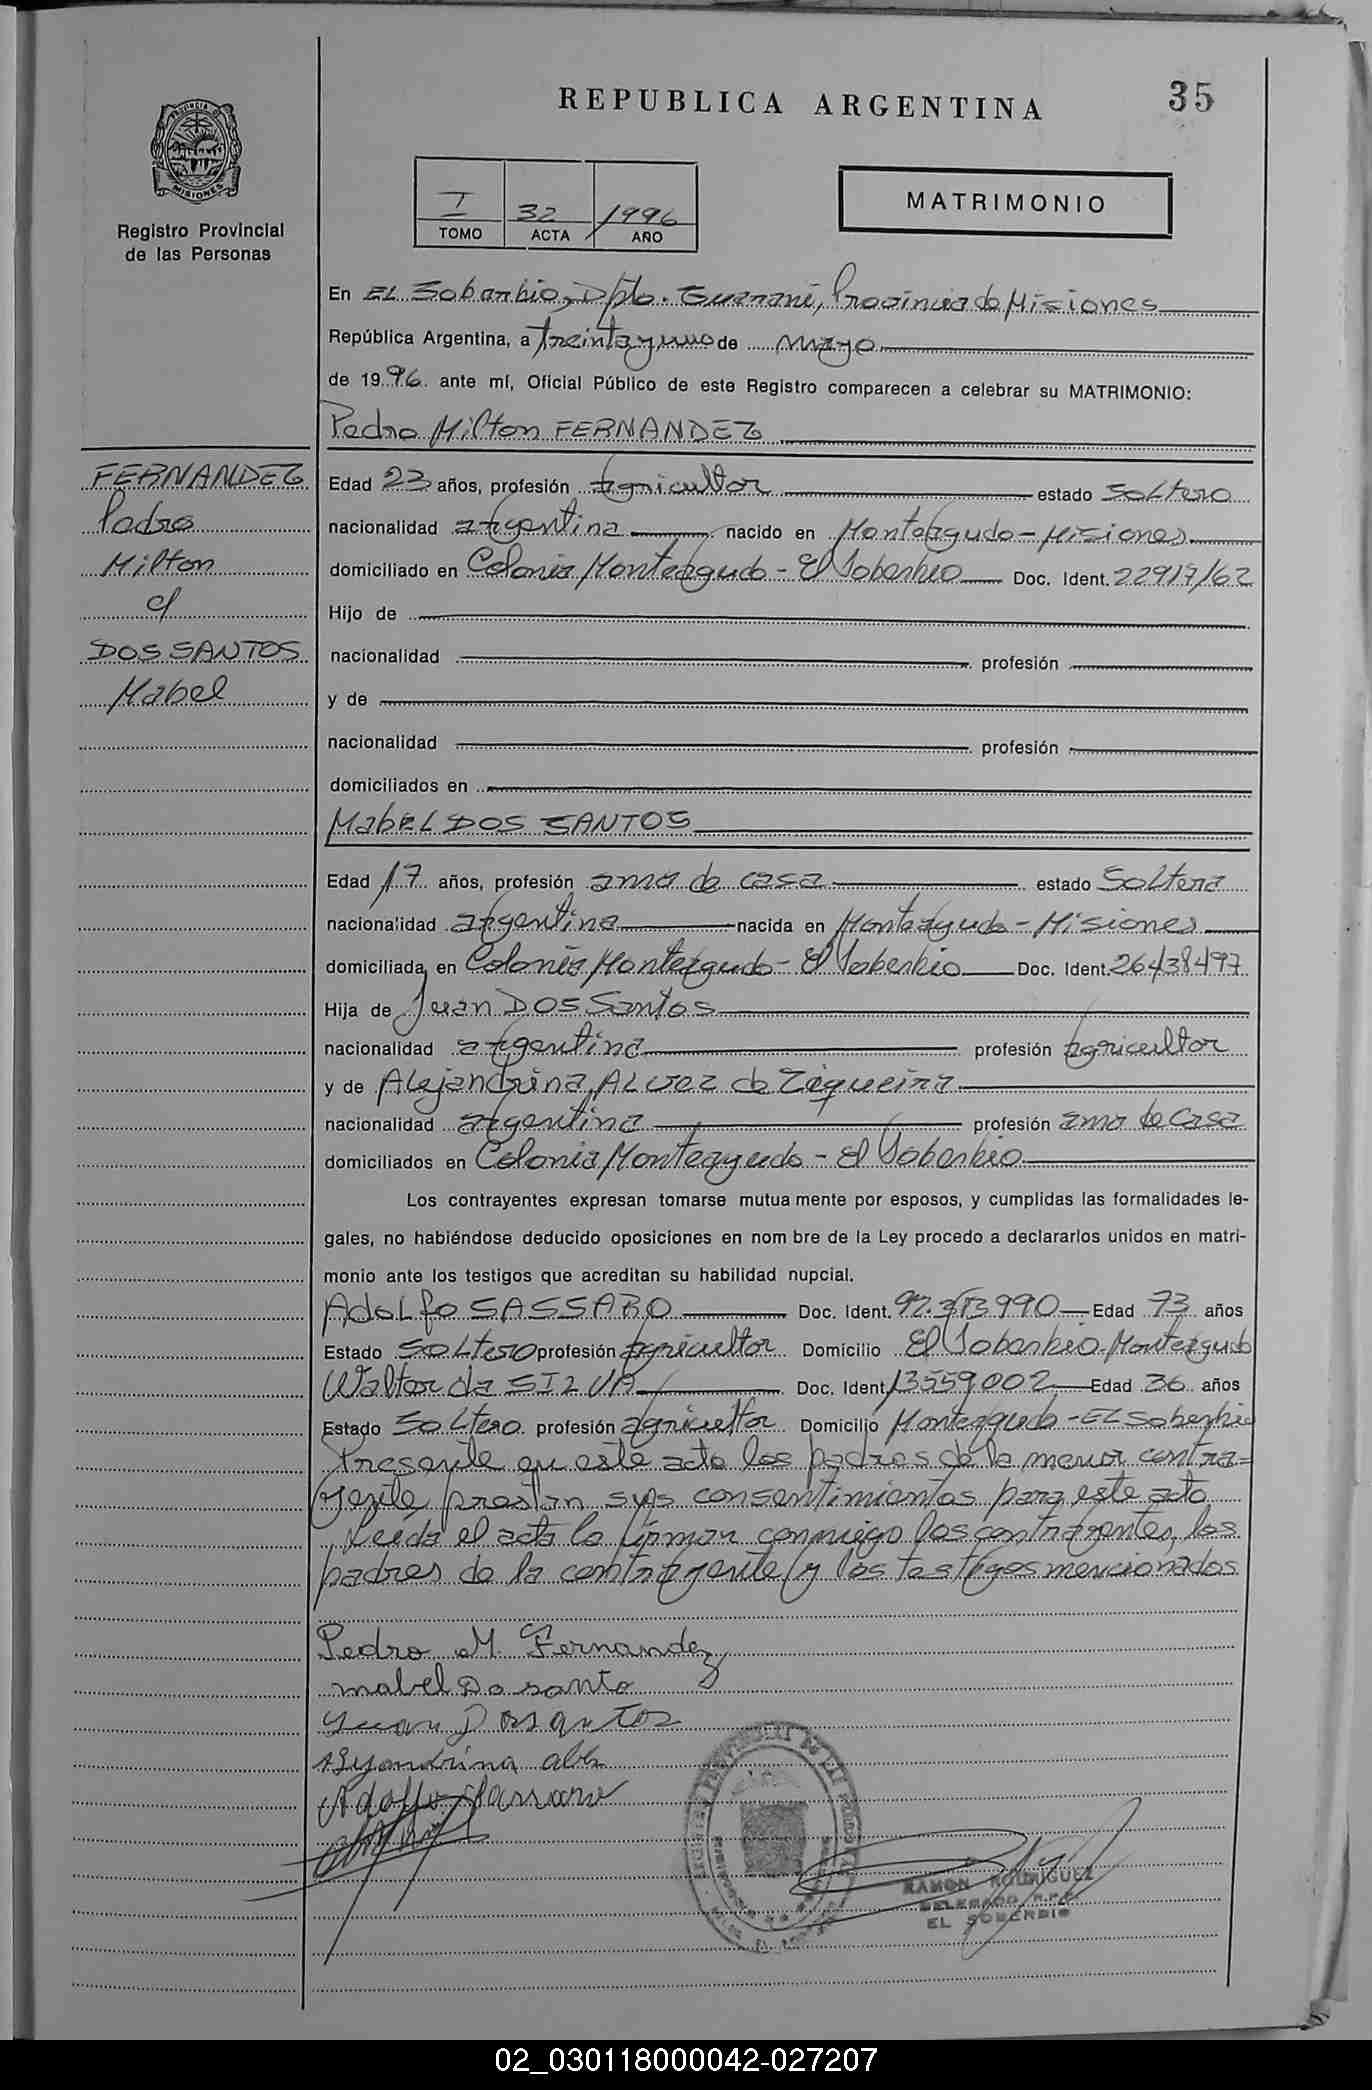 REPUBLICA ARGENTINA
35
PROVINCIA D
MISIONES
Registro Provincial
de las Personas
I 32 1996
TOMO ACTA AÑO
MATRIMONIO
En EL Soberbio, Dpto. Guaraní, Provincia de Misiones
República Argentina, a treinta y uno de mayo
de 1996 ante mí, Oficial Público de este Registro comparecen a celebrar su MATRIMONIO:
Pedro Milton FERNANDEZ
FERNANDEZ
Pedro
Milton
c/
DOS SANTOS
Mabel
Edad 23 años, profesión agricultor estado soltero
nacionalidad argentina nacido en Monteagudo - Misiones
domiciliado en Colonia Monteagudo - El Soberbio Doc. Ident. 22917162
Hijo de
nacionalidad profesión
y de
nacionalidad profesión
domiciliados en
MabEL DOS SANTOS
Edad 17 años, profesión ama de casa estado Soltera
nacionalidad argentina nacida en Monteagudo - Misiones
domiciliada en Colonia Monteagudo - El Soberbio Doc. Ident. 26438497
Hija de Juan DOS Santos
nacionalidad argentina profesión agricultor
y de Alejandrina ALvez de Ziqueira
nacionalidad argentina profesión ama de casa
domiciliados en Colonia Monteagudo - El Soberbio
Los contrayentes expresan tomarse mutua mente por esposos, y cumplidas las formalidades le-
gales, no habiéndose deducido oposiciones en nom bre de la Ley procedo a declararlos unidos en matri-
monio ante los testigos que acreditan su habilidad nupcial.
AdoLfo SASSARO Doc. Ident. 92.313990 Edad 73 años
Estado Soltero profesión agricultor Domicilio El Soberbio-Monteagudo
Walter da SILVA Doc. Ident 13559002 Edad 36 años
Estado Soltero profesión agricultor Domicilio Monteagudo - EL Soberbio
Presente en este acto los padres de la menor contra=
yente, prestan sus consentimientos para este acto
Leída el acta la firman conmigo los contrayentes, los
padres de la contrayente y los testigos mencionados
Pedro M. Fernandez
mabel Do santo
Juan Dos antos
Adolfo Sassaro
RAMON RODRIGUEZ
DELEGADO R.P.P.
EL SOBERBIO
02_030118000042-027207